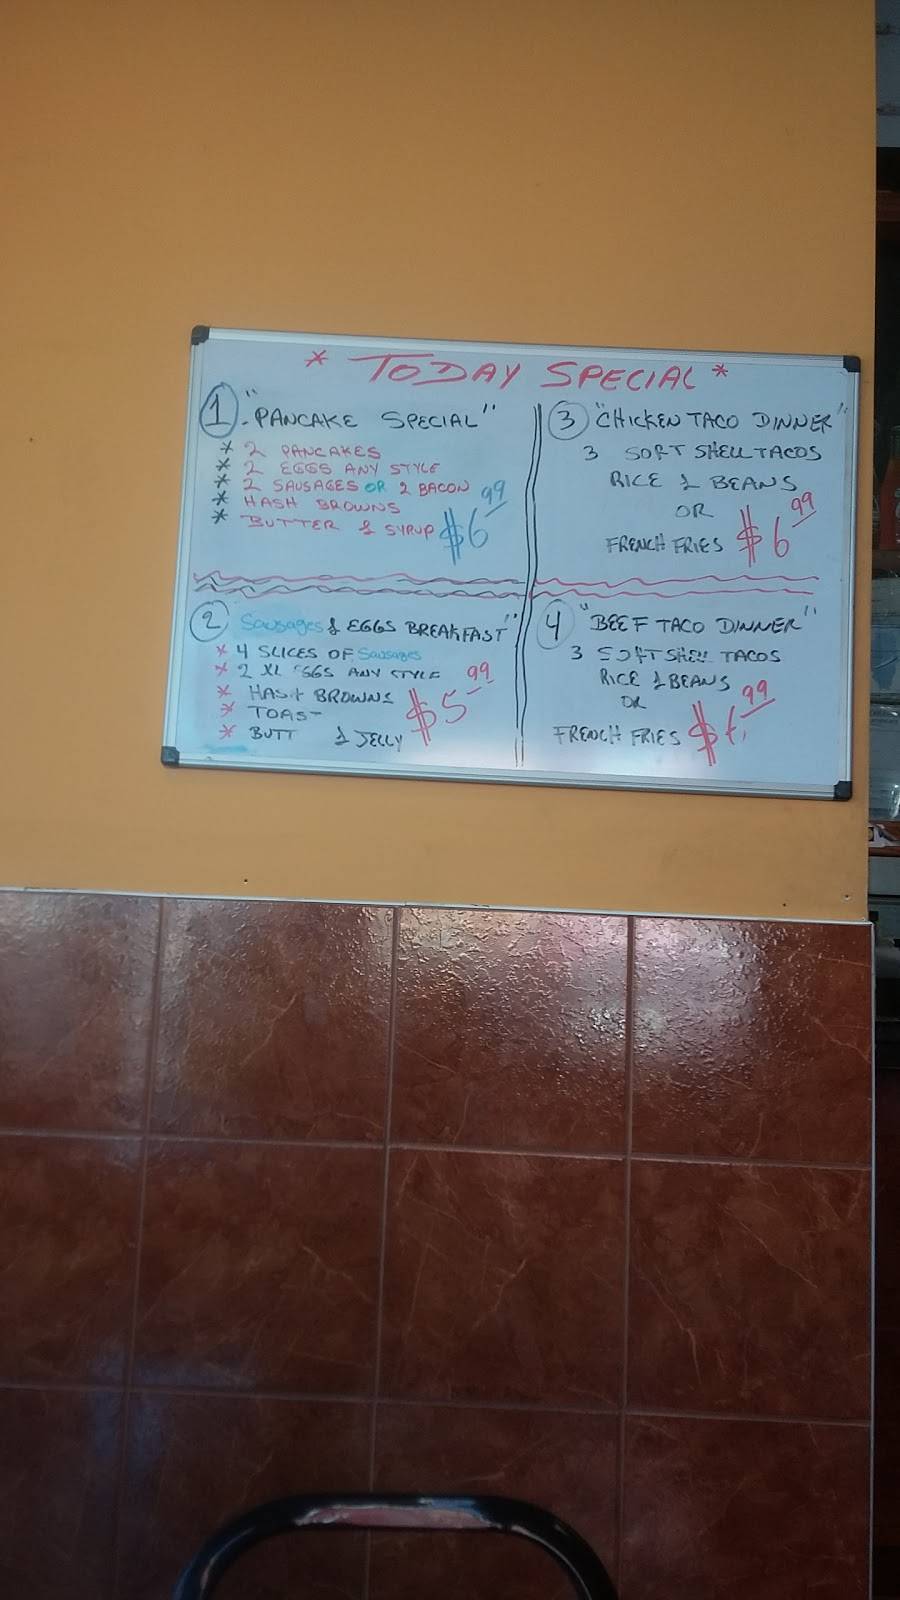 * TODAY SPECIAL *
1. "PANCAKE SPECIAL"
* 2 PANCAKES
* 2 EGGS ANY STYLE
* 2 SAUSAGES OR 2 BACON
* HASH BROWNS
* BUTTER & SYRUP $6.99
2 Sausages & EGGS BREAKFAST"
* 4 SLICES OF Sausages
* 2 XL EGGS ANY STYLE
* HASH BROWNS $5.99
* TOAST
* BUTT & JELLY
3 "CHICKEN TACO DINNER"
3 SOFT SHELL TACOS
RICE & BEANS
OR
FRENCH FRIES $6.99
4 "BEEF TACO DINNER"
3 SOFT SHELL TACOS
RICE & BEANS
OR
FRENCH FRIES